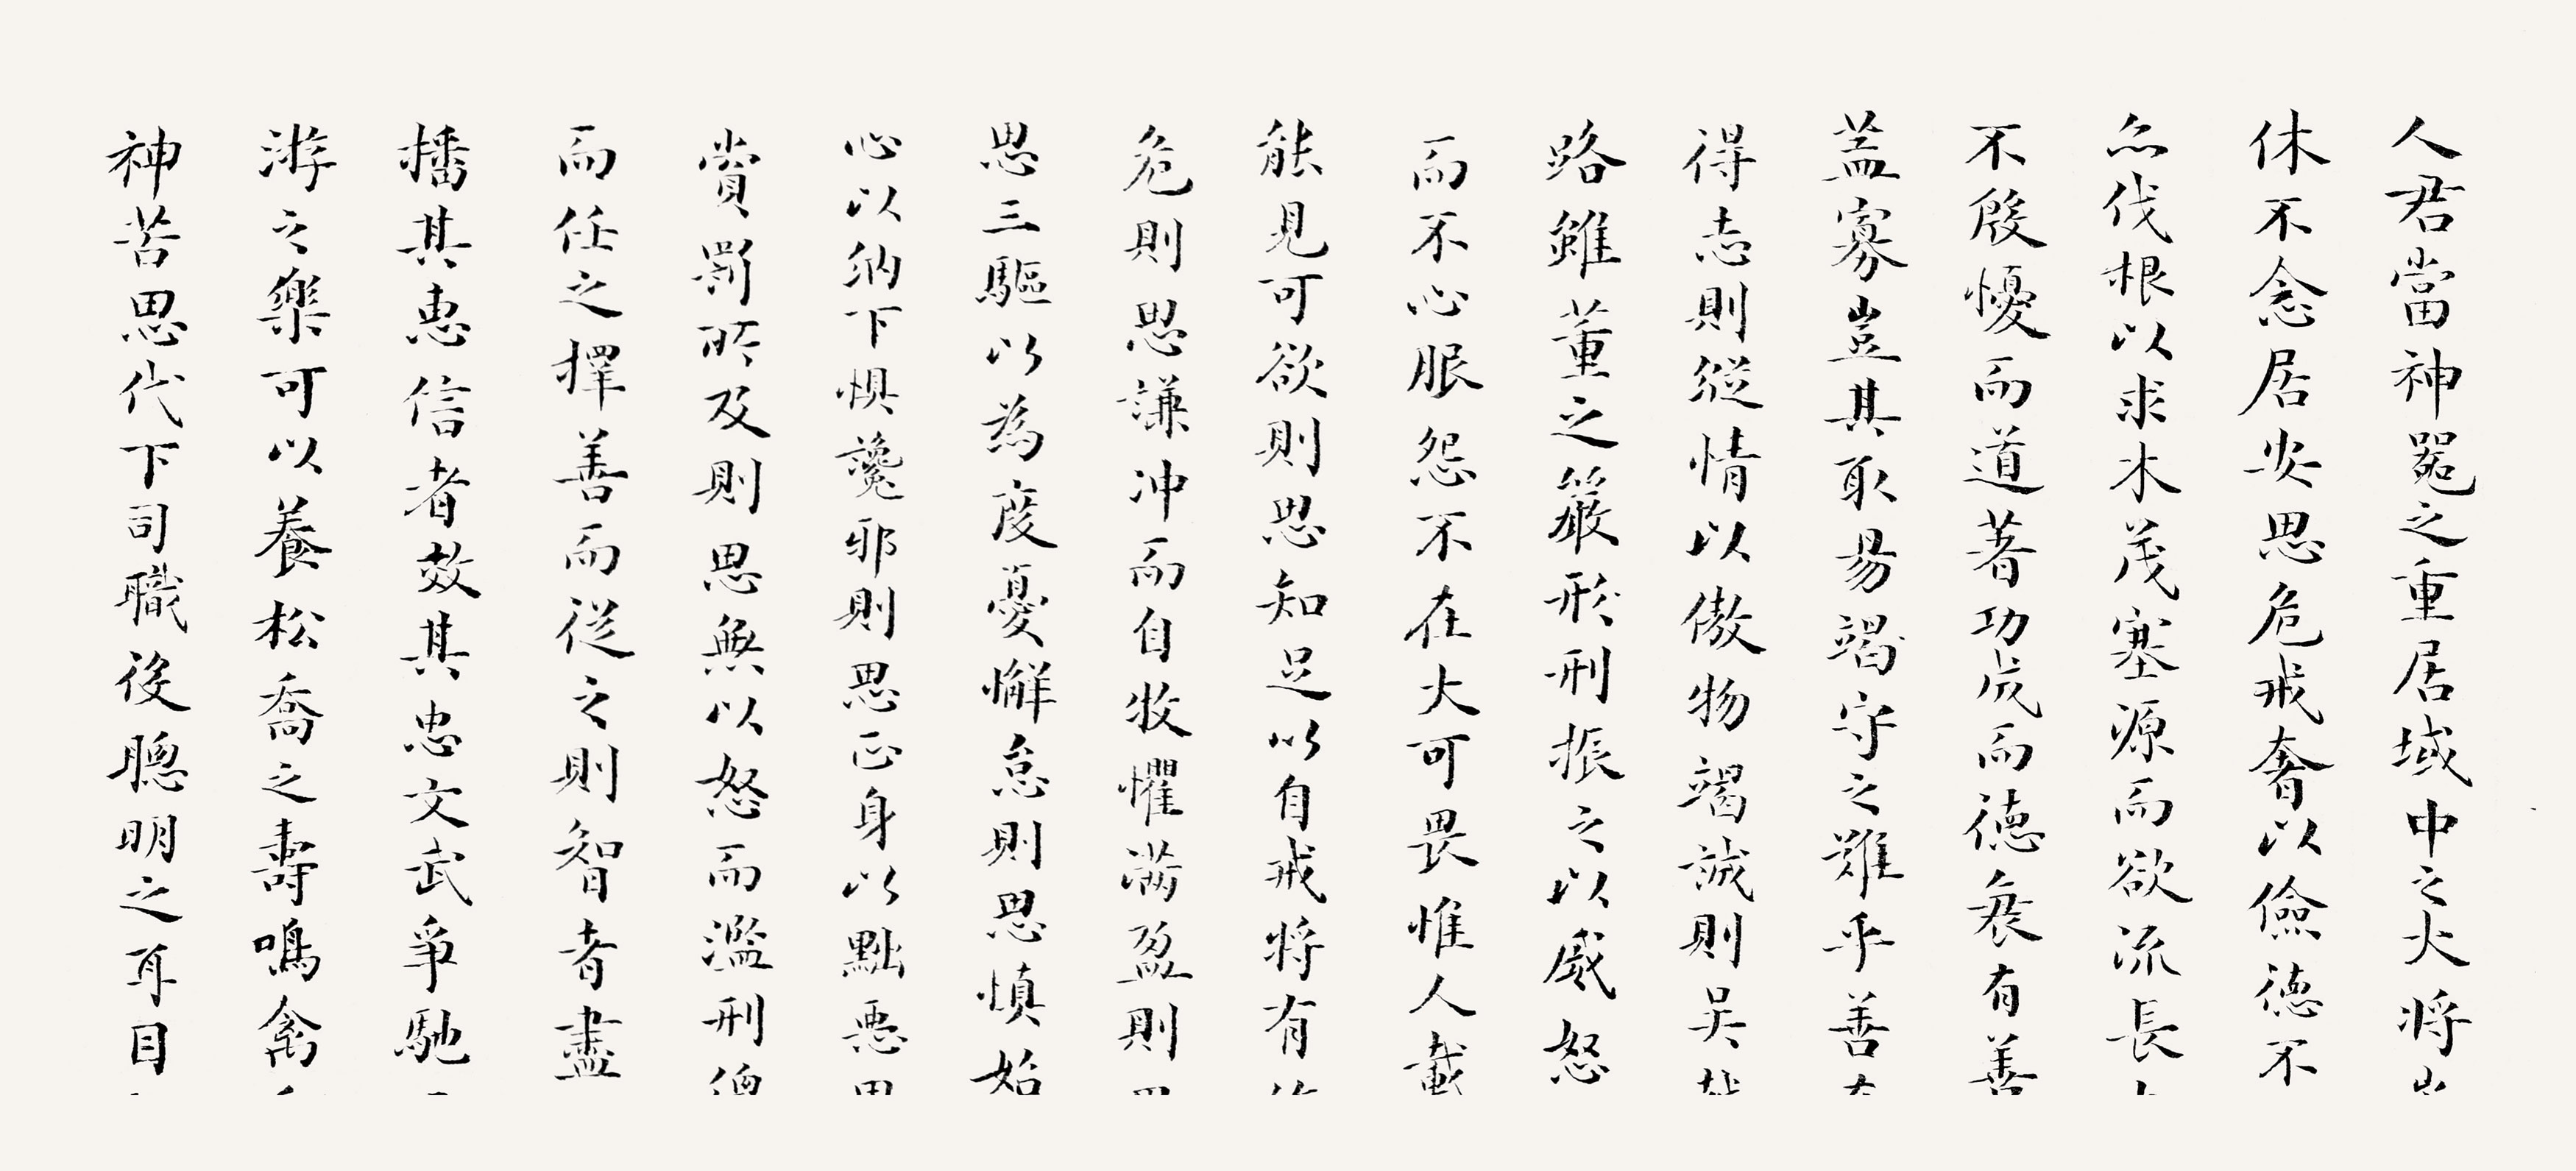 人君當神器之重居域中之大將
休不念居安思危戒奢以儉德不
亦伐根以求木茂塞源而欲流長
不殷懮而道著功成而德衰有善
蓋寡豈其取易竭守之難乎善
得志則縱情以傲物竭誠則吴
路雖董之嚴形刑振之以威怒
而不心服怨不在大可畏惟人載
能見可欲則思知足以自戒將有
危則思謙冲而自牧懼滿盈則
思三驅以為度憂懈怠則思慎始
心以納下惧讒邪則思正身以黜惡
賞罰所及則思無以怒而濫刑
而任之擇善而從之則智者盡
播其惠信者效其忠文武爭馳
游之樂可以養松喬之壽鳴禽
神苦思代下司職後聰明之耳目